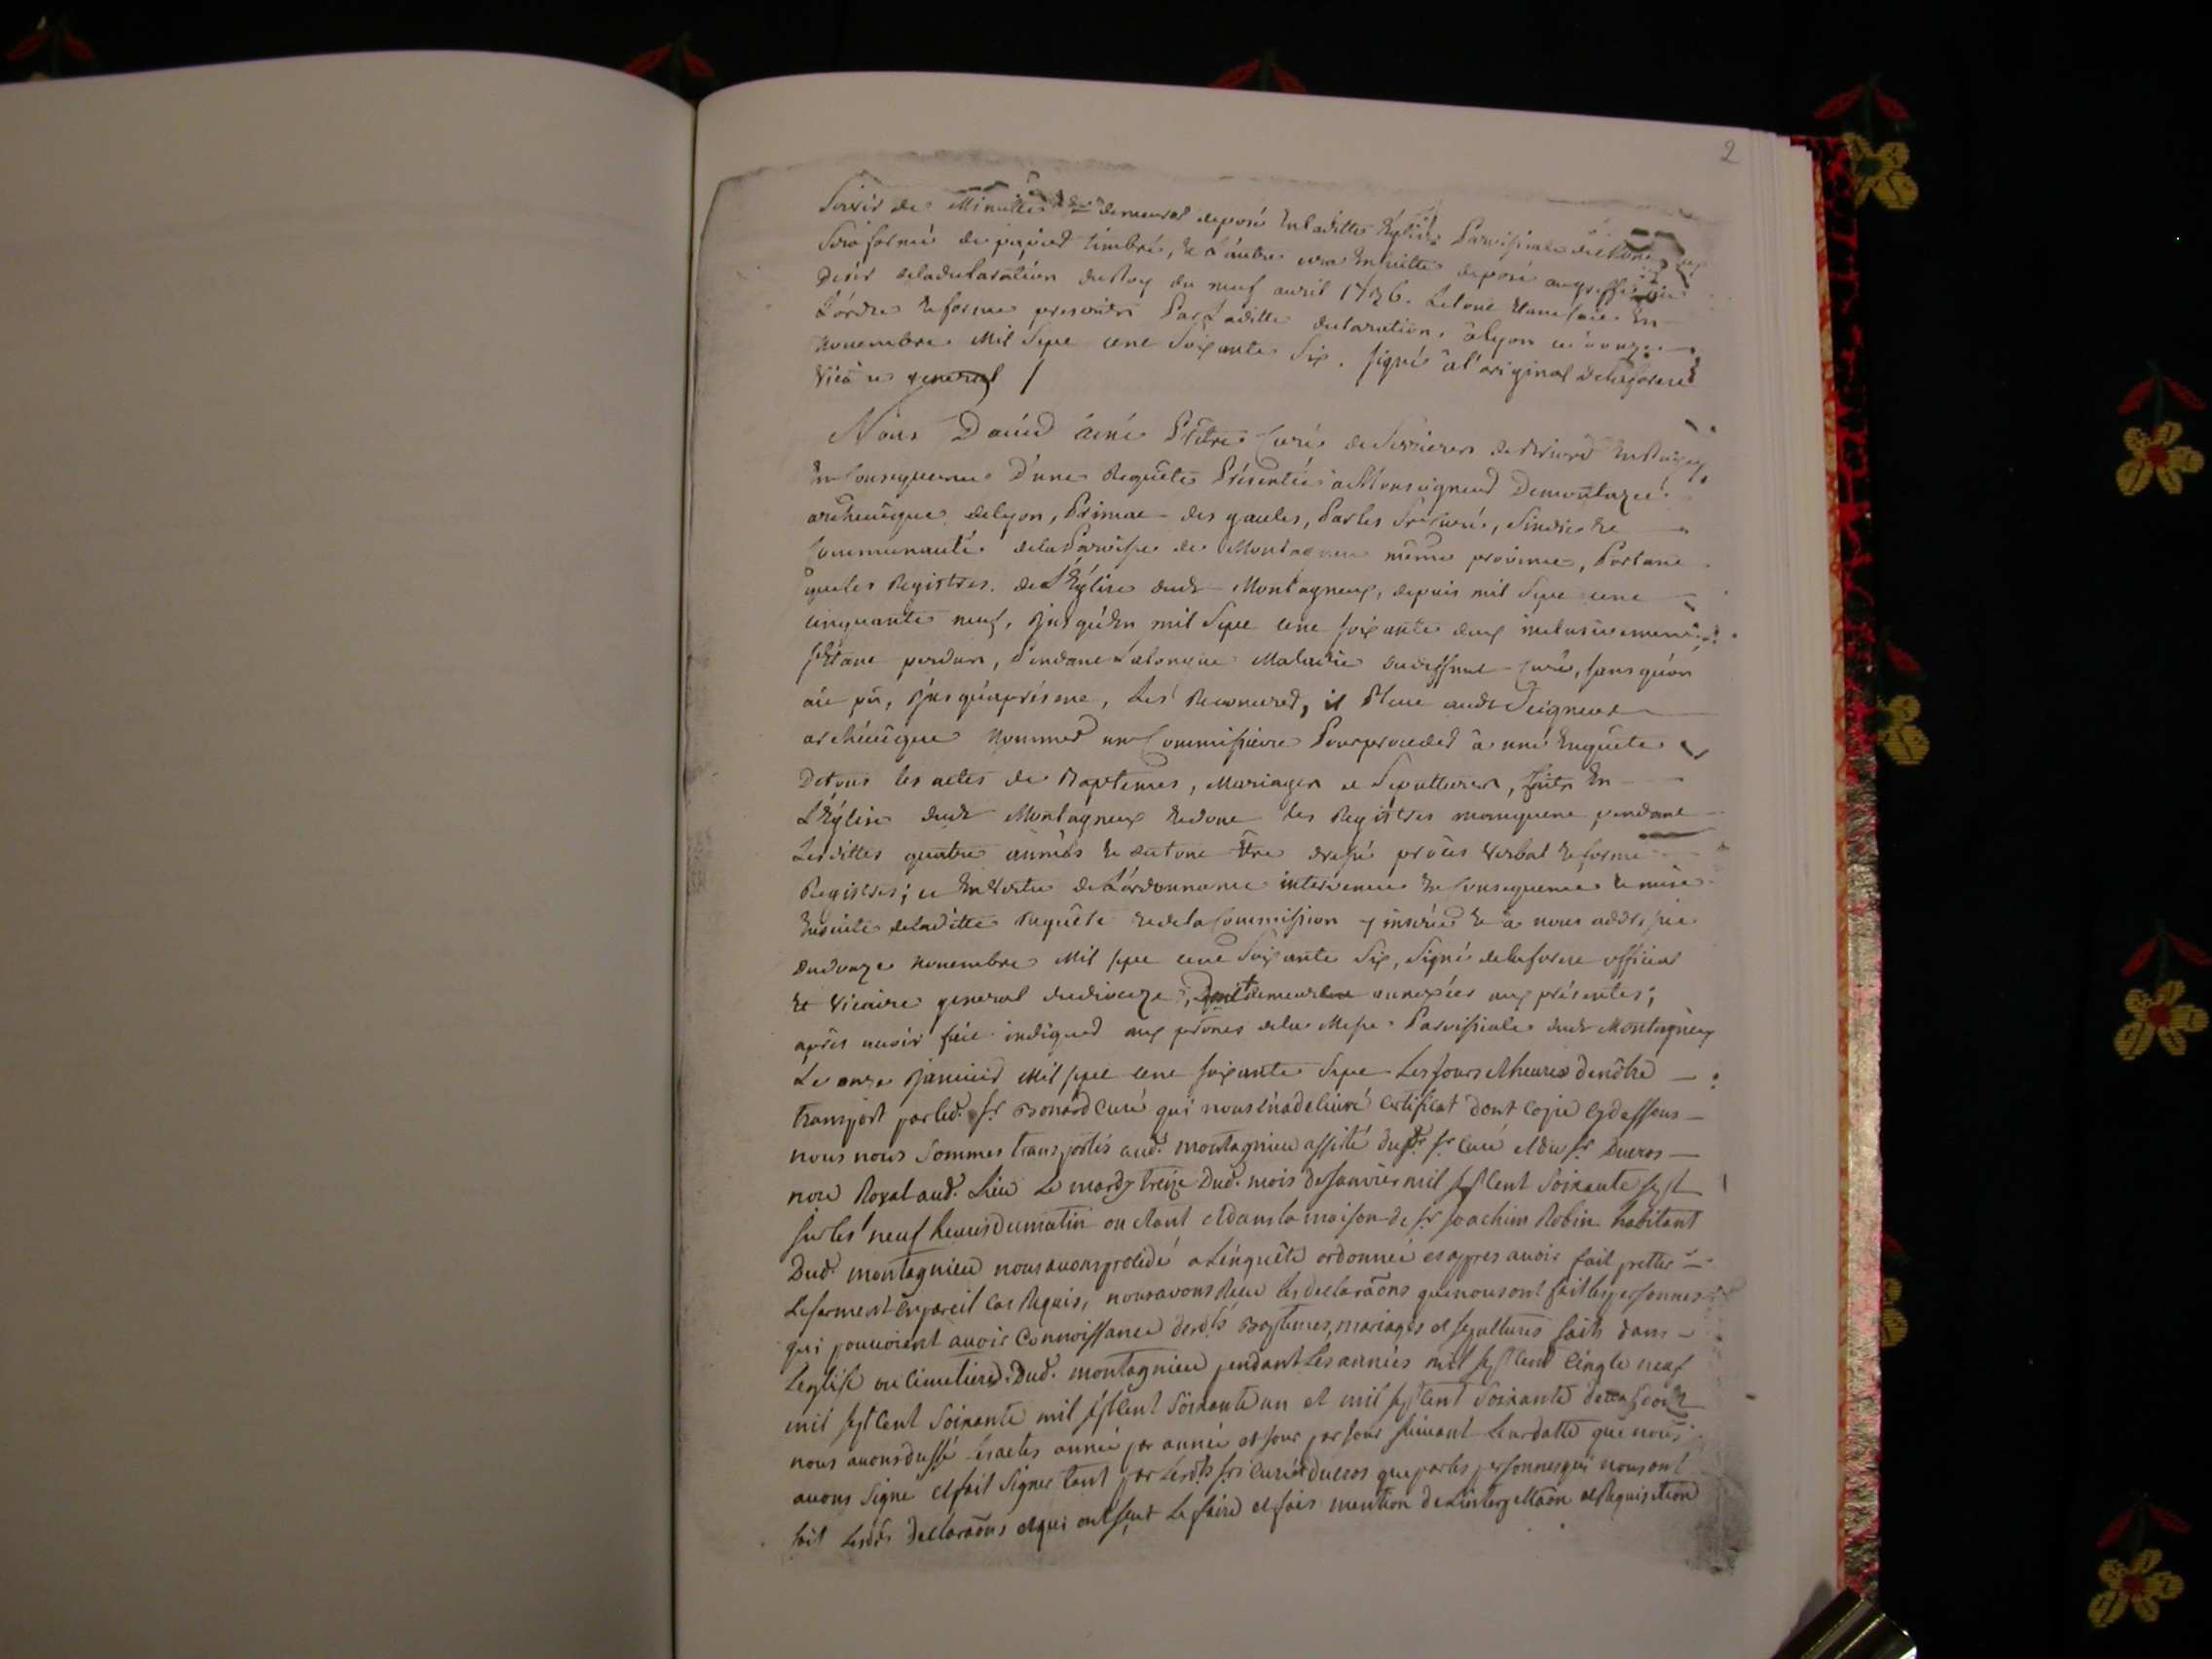 2
Servir de Minutte demeurer deposé En laditte Eglise Parroissiale
Sera formé de papier timbré, Et L'autre sera Ensuitte deposé au greffe
Desir de la declaration du Roy du neuf avril 1736. Le tout Etant faie En
L'ordre Et forme prescrits Par Laditte declaration, à lyon ce onze
Novembre Mil Sept cent Soixante Six. signé à l'original delaforest
Vicaire general /
Nous David ainé Prêtre Curé de Serrieres de Briord En Bugey
En Consequence D'une Requête Présentée à Monseigneur Demontazet
archeveque de lyon, Primat des gaules, Par les Sr Curé, Sindic Et
Communauté de la Parroisse de Montagneux même province, Portant
que les Registres de L'Eglise dudt Montagneux, depuis mil Sept cent
cinquante neuf, Jusqu'En mil Sept cent soixante deux inclusivement
s'Etant perdus, Pendant La longue Maladie du deffunt Curé, sans qu'on
aie pû, Jusqu'aprésent, Les Recouvrer, il Plaise audt Seigneur
archevêque Nommer un Commissaire Pour proceder à une Enquête
De tous les actes de Baptemes, Mariages et Sepultures, faits En
L'Eglise dudt Montagneux Et dont les Registres manquent pendant
Lesdittes quatre années Et du tout Etre dressé procès Verbal En forme
Registres; et En Vertu de L'ordonnance intervenue En Consequence Et mise
Ensuite de laditte Requête Et de la Commission y inserée Et à nous addressée
Du onze Novembre Mil sept cent Soixante Six, Signé delaforest official
Et Vicaire general du dioceze, Dont demeurent annexées aux présentes;
après avoir faie indiquer aux prônes de la Messe Parroissiale dudt Montagneux
Le onze Janvier Mil sept cent soixante Sept Les jours et heures de nôtre
transport par led. sr Bonard Curé qui nous En a delivré Certificat dont Copie Cy dessous
nous nous sommes transportés aud. montagnieu assisté dud. sr Curé et du sr Ducros
nore Royal aud. Lieu Le mardy treize Dud. mois de Janvier mil sept Cent Soixante sept
sur les neuf heures du matin ou etant et dans la maison de sr Joachim Robin habitant
Dud. montagnieu nous avons procédé a L'enquête ordonnée et apres avoir fait pretter
Le serment En pareil Cas Requis, nous avons Reçu les declaraõns que nous ont fait les personnes
qui pouvoient avoir Connoissance desdts Baptemes, mariages et sepultures faits dans
L'eglise ou Cimetiere Dud. montagnieu pendant Les années mil sept Cent Cinqte neuf
mil sept Cent Soixante mil sept Cent Soixante un et mil sept Cent Soixante deux dont
nous avons dressé les actes année par année et jour par jour suivant Leur datte que nous
avons signe et fait signer tant par Lesdts srs Curé et Ducros que par les personnes qui nous ont
fait Lesdts declaraõns et qui ont sçut Le faire et fais mention de L'interpellaõn et Requisition